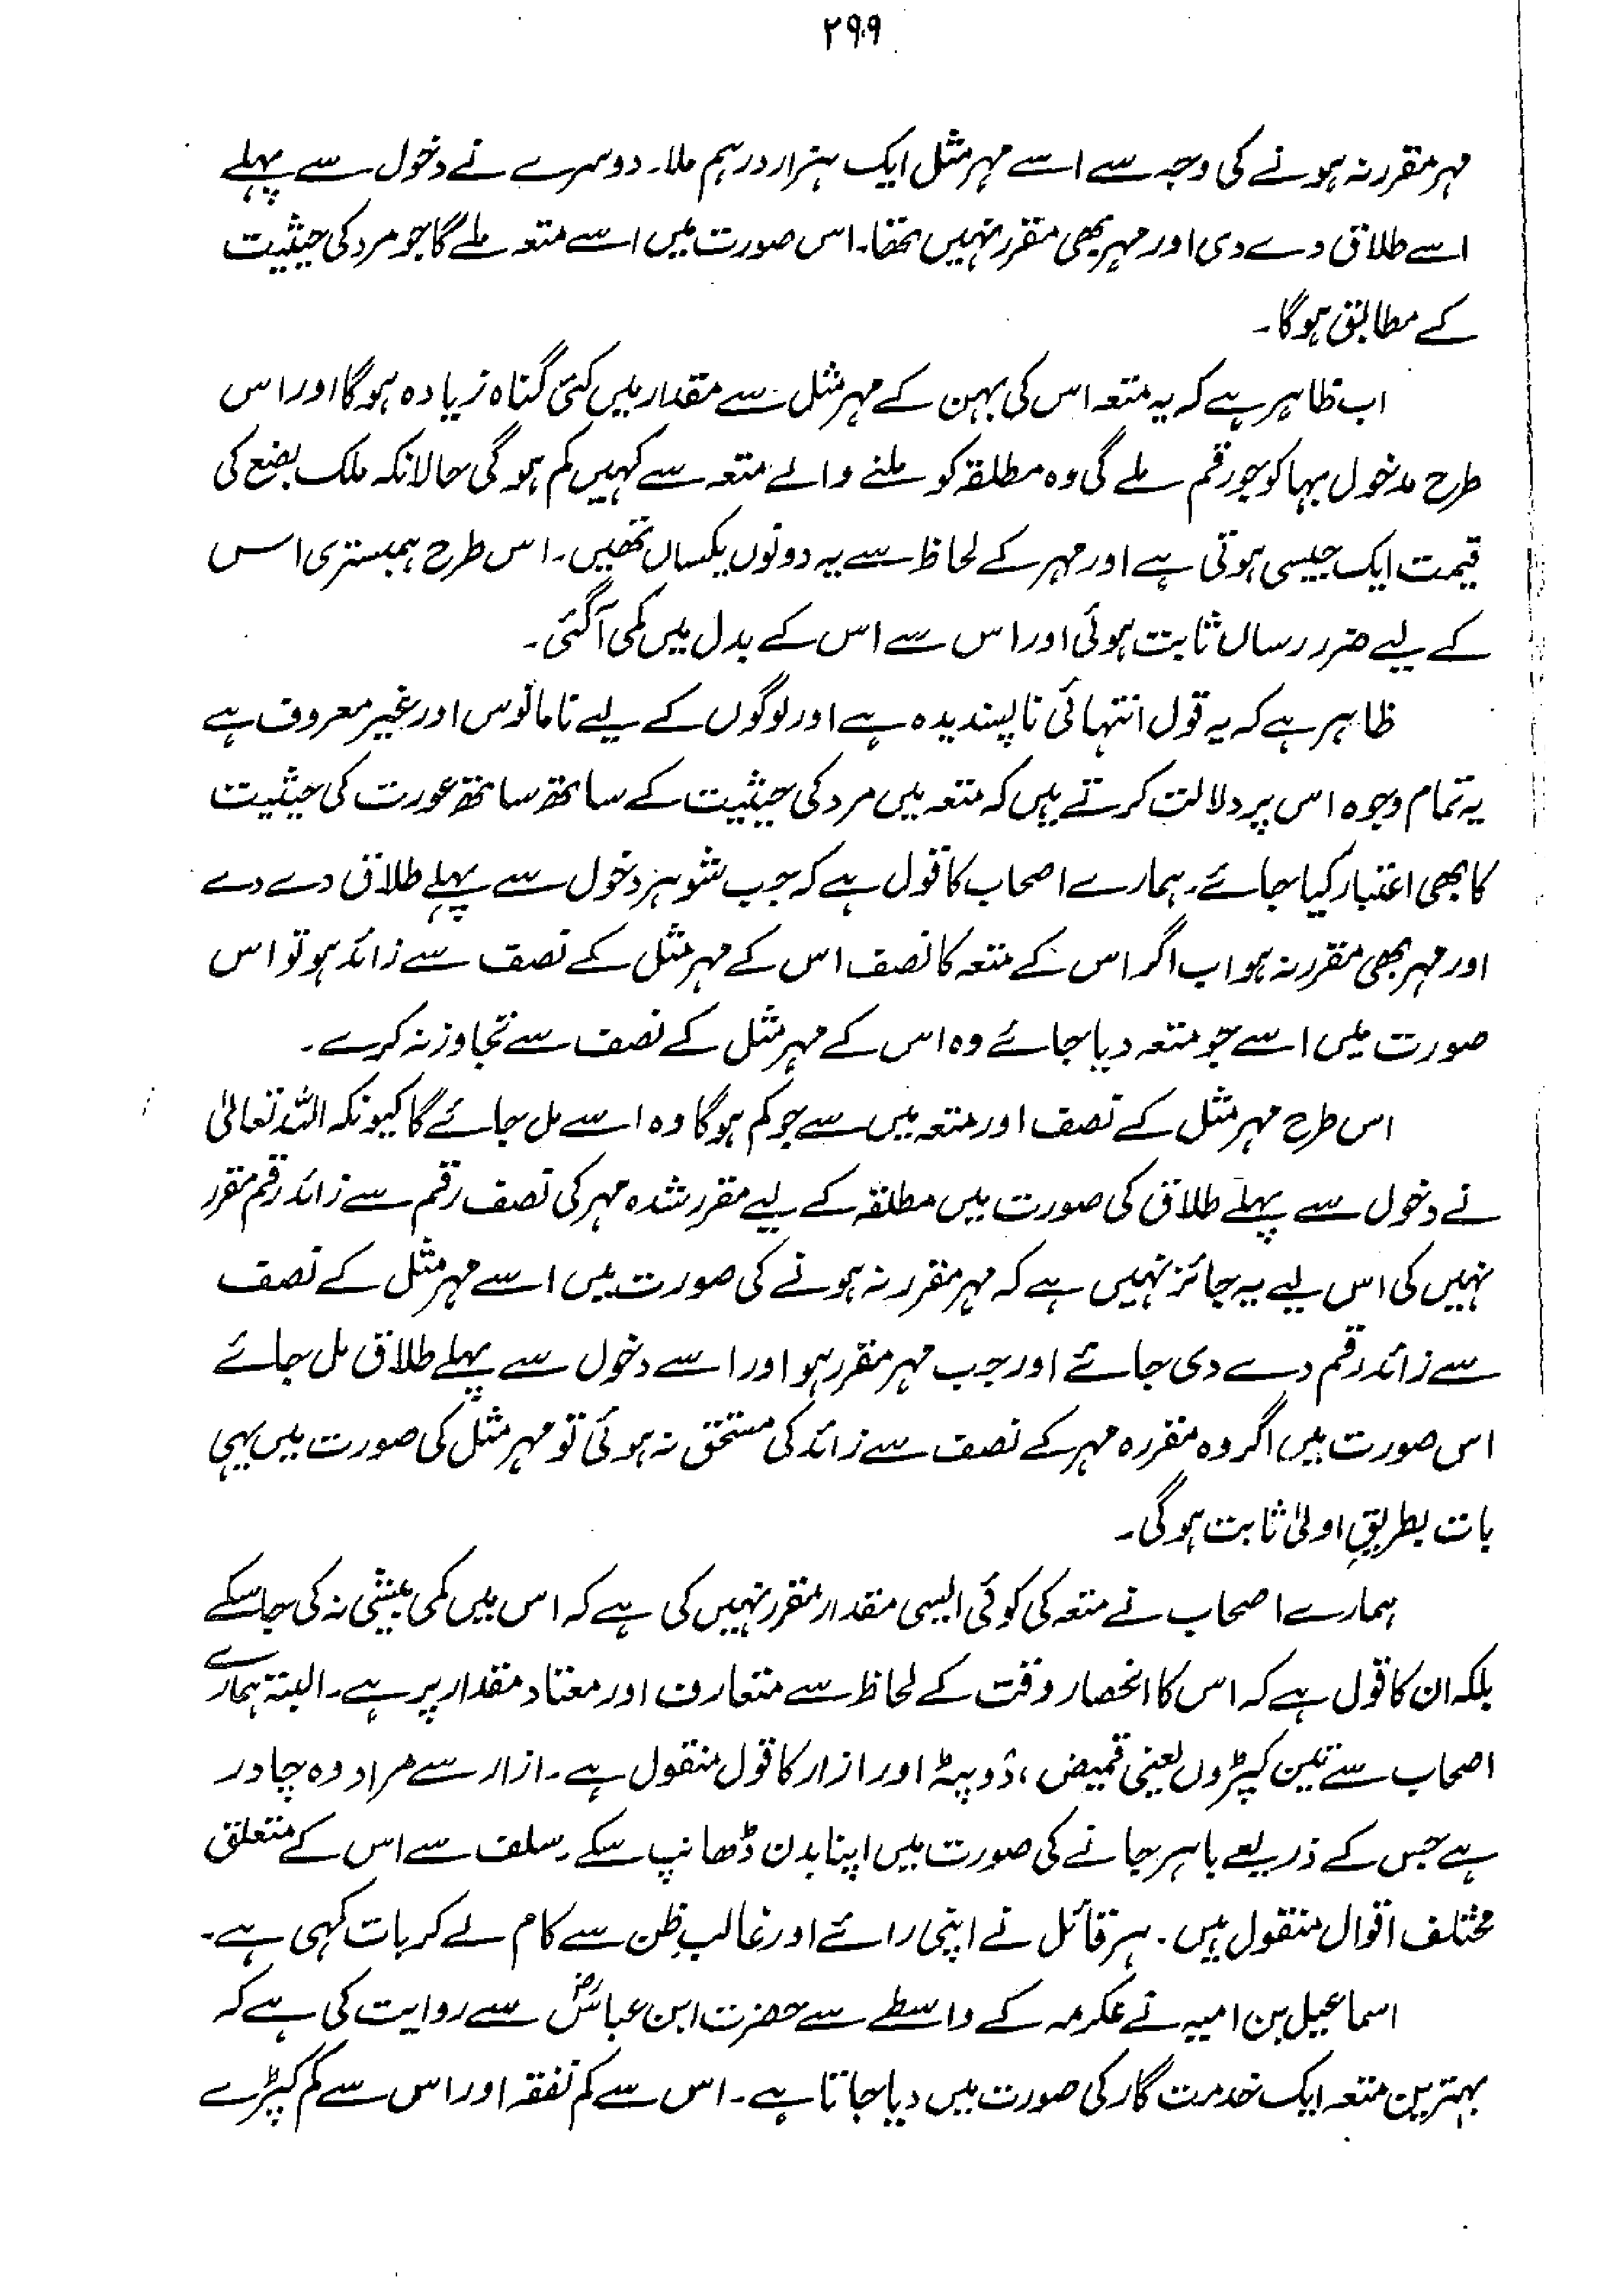 ۲۹۹
مہر مقرر نہ ہونے کی وجہ سے اسے مہر مثل ایک ہزار درہم ملا۔ دوسرے نے دخول سے پہلے
اسے طلاق دے دی اور مہر بھی مقرر نہیں تھا۔ اس صورت میں اسے متعہ ملے گا جو مرد کی حیثیت
کے مطابق ہوگا۔
اب ظاہر ہے کہ یہ متعہ اس کی بہن کے مہر مثل سے مقدار میں کئی گناہ زیادہ ہوگا اور اس
طرح مدخول بہا کو جو رقم ملے گی وہ مطلقہ کو ملنے والے متعہ سے کہیں کم ہوگی حالانکہ ملک بضع کی
قیمت ایک جیسی ہوتی ہے اور مہر کے لحاظ سے یہ دونوں یکساں تھیں۔ اس طرح ہمبستری اس
کے لیے ضرر رساں ثابت ہوئی اور اس سے اس کے بدل میں کمی آگئی۔
ظاہر ہے کہ یہ قول انتہائی ناپسندیدہ ہے اور لوگوں کے لیے نامانوس اور غیر معروف ہے
یہ تمام وجوہ اس پر دلالت کرتے ہیں کہ متعہ میں مرد کی حیثیت کے ساتھ ساتھ عورت کی حیثیت
کا بھی اعتبار کیا جائے۔ ہمارے اصحاب کا قول ہے کہ جب شوہر دخول سے پہلے طلاق دے دے
اور مہر بھی مقرر نہ ہو اب اگر اس کے متعہ کا نصف اس کے مہر مثل کے نصف سے زائد ہو تو اس
صورت میں اسے جو متعہ دیا جائے وہ اس کے مہر مثل کے نصف سے تجاوز نہ کرے۔
اس طرح مہر مثل کے نصف اور متعہ میں سے جو کم ہوگا وہ اسے مل جائے گا کیونکہ اللہ تعالیٰ
نے دخول سے پہلے طلاق کی صورت میں مطلقہ کے لیے مقرر شدہ مہر کی نصف رقم سے زائد رقم مقرر
نہیں کی اس لیے یہ جائز نہیں ہے کہ مہر مقرر نہ ہونے کی صورت میں اسے مہر مثل کے نصف
سے زائد رقم دے دی جائے اور جب مہر مقرر ہو اور اسے دخول سے پہلے طلاق مل جائے
اس صورت میں اگر وہ مقررہ مہر کے نصف سے زائد کی مستحق نہ ہوئی تو مہر مثل کی صورت میں یہی
بات بطریقِ اولیٰ ثابت ہوگی۔
ہمارے اصحاب نے متعہ کی کوئی ایسی مقدار مقرر نہیں کی ہے کہ اس میں کمی بیشی نہ کی جاسکے
بلکہ ان کا قول ہے کہ اس کا انحصار وقت کے لحاظ سے متعارف اور معتاد مقدار پر ہے۔ البتہ ہمارے
اصحاب سے تین کپڑوں یعنی قمیض، دوپٹہ اور ازار کا قول منقول ہے۔ ازار سے مراد وہ چادر
ہے جس کے ذریعے باہر جانے کی صورت میں اپنا بدن ڈھانپ سکے۔ سلف سے اس کے متعلق
مختلف اقوال منقول ہیں۔ ہر قائل نے اپنی رائے اور غالبِ ظن سے کام لے کر بات کہی ہے۔
اسماعیل بن امیہ نے عکرمہ کے واسطے سے حضرت ابن عباسؓ سے روایت کی ہے کہ
بہترین متعہ ایک خدمت گار کی صورت میں دیا جاتا ہے۔ اس سے کم نفقہ اور اس سے کم کپڑے